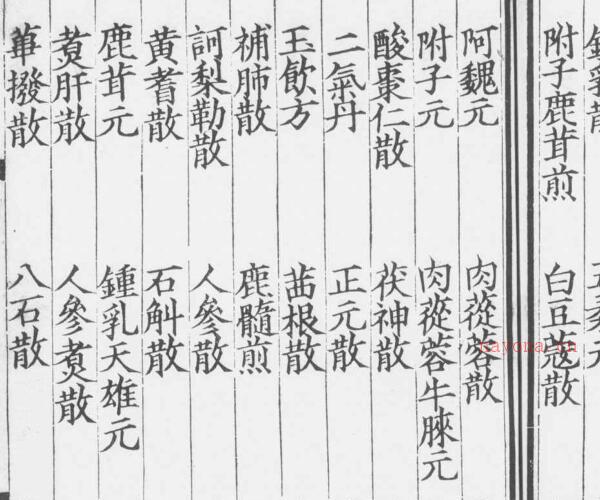 附子鹿茸煎　白豆蔻散
阿魏元　肉蓯蓉散
附子元　肉蓯蓉牛膝元
酸棗仁散　茯神散
二氣丹　正元散
玉飲方　茜根散
補肺散　鹿髓煎
訶梨勒散　人參散
黃耆散　石斛散
鹿茸元　鍾乳天雄元
煑肝散　人參煑散
蓽撥散　八石散
nayona.cn